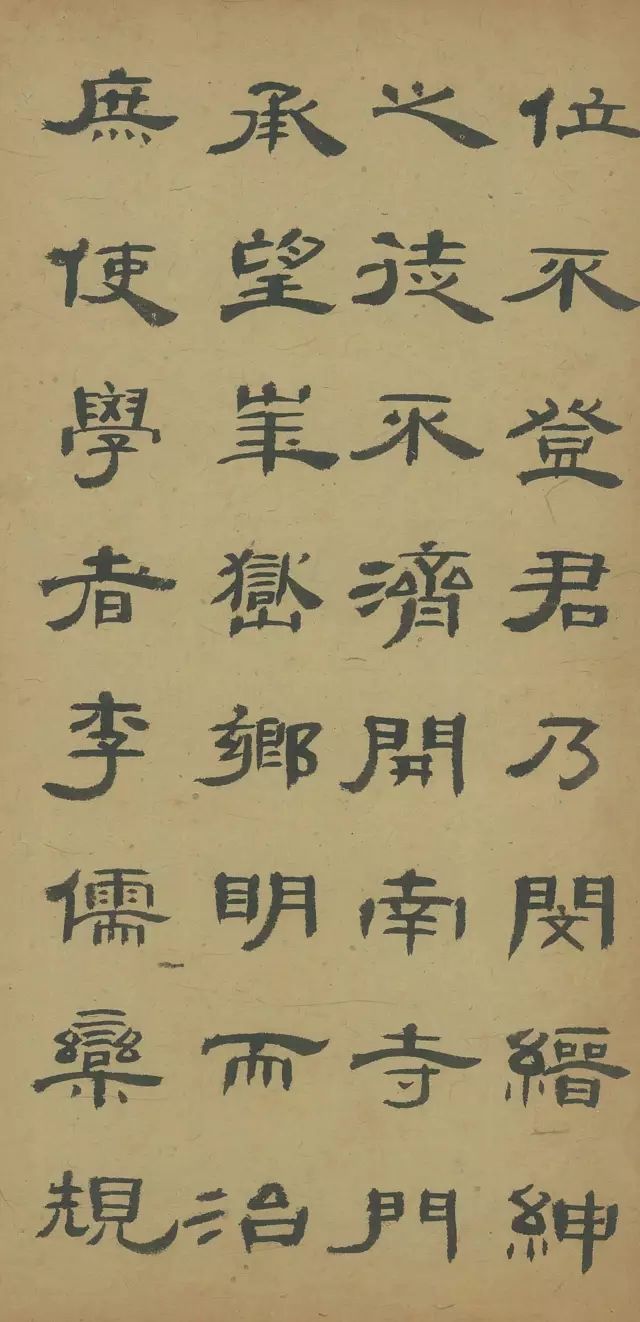 位不登君乃閔縉紳
之徒不濟開南寺門
承望崋嶽鄉明而治
庶使學者李儒欒規